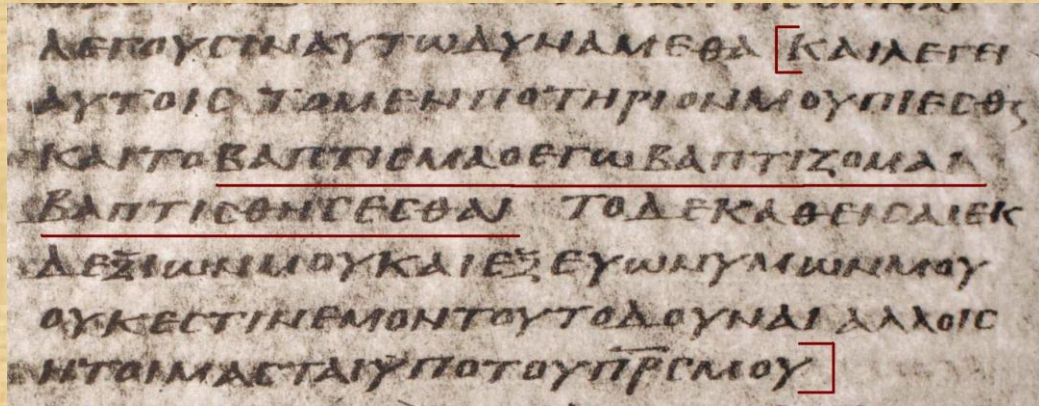 ΛΕΓΟΥϹΙΝΑΥΤΩΔΥΝΑΜΕΘΑ ΚΑΙΛΕΓΕΙ
ΑΥΤΟΙϹ ΤΟΜΕΝΠΟΤΗΡΙΟΝΜΟΥΠΙΕϹΘΕ
ΚΑΙΤΟΒΑΠΤΙϹΜΑΟΕΓΩΒΑΠΤΙΖΟΜΑΙ
ΒΑΠΤΙϹΘΗϹΕϹΘΑΙ ΤΟΔΕΚΑΘΕΙϹΑΙΕΚ
ΔΕΞΙΩΝΜΟΥΚΑΙΕΞΕΥΩΝΥΜΩΝΜΟΥ
ΟΥΚΕϹΤΙΝΕΜΟΝΤΟΥΤΟΔΟΥΝΑΙ ΑΛΛΟΙϹ
ΗΤΟΙΜΑϹΤΑΙΥΠΟΤΟΥΠ̅Ρ̅Ϲ̅ΜΟΥ